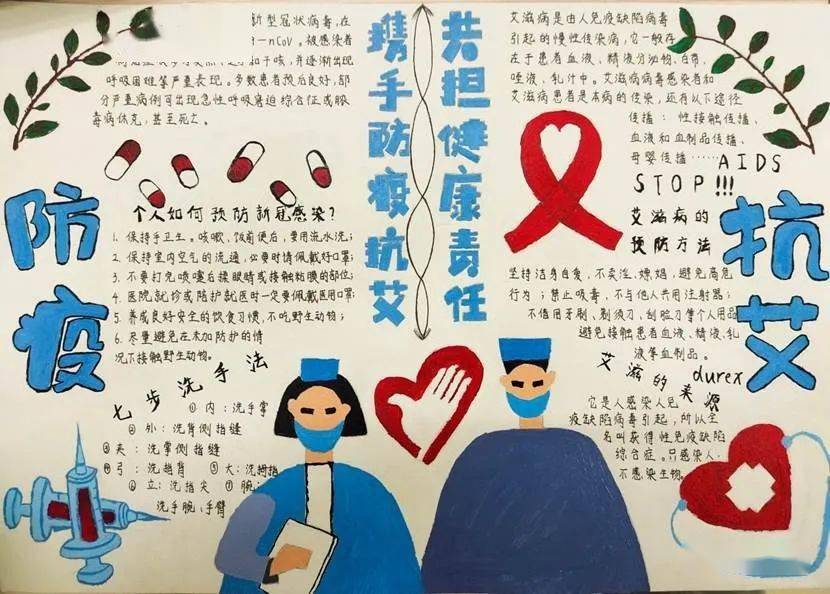 新型冠状病毒，在
nCoV。被感染者
和干咳，并逐渐出现
呼吸困难等严重表现。多数患者预后良好，部
分严重病例可出现急性呼吸窘迫综合征或脓
毒病休克，甚至死亡。
携手防疫抗艾
共担健康责任
艾滋病是由人免疫缺陷病毒
引起的慢性传染病，它一般存
在于患者血液、精液分泌物、白带、
唾液、乳汁中。艾滋病病毒感染者和
艾滋病患者是本病的传染，还有以下途径
传播：性接触传播、
血液和血制品传播、
母婴传播……AIDS
STOP!!!
防疫
个人如何预防新冠感染？
1. 保持手卫生。咳嗽、饭前便后，要用流水洗；
2. 保持室内空气的流通，必要时请佩戴好口罩；
3. 不要打完喷嚏后揉眼睛或接触粘膜的部位；
4. 医院就诊或陪护就医时一定要佩戴医用口罩；
5. 养成良好安全的饮食习惯，不吃野生动物；
6. 尽量避免在未加防护的情
况下接触野生动物。
七步洗手法
①内：洗手掌
②外：洗背侧指缝
③夹：洗掌侧指缝
④弓：洗指背 ⑤大：洗拇指
⑥立：洗指尖 ⑦腕：
洗手腕、手臂
艾滋病的
预防方法
抗艾
坚持洁身自爱，不卖淫、嫖娼，避免高危
行为；禁止吸毒，不与他人共用注射器；
不借用牙刷，剃须刀，刮脸刀等个人用品
避免接触患者血液、精液、乳
液等血制品。
艾滋的来源
durex
它是人感染人免
疫缺陷病毒引起，所以全
名叫获得性免疫缺陷
综合症。只感染人，
不感染生物。